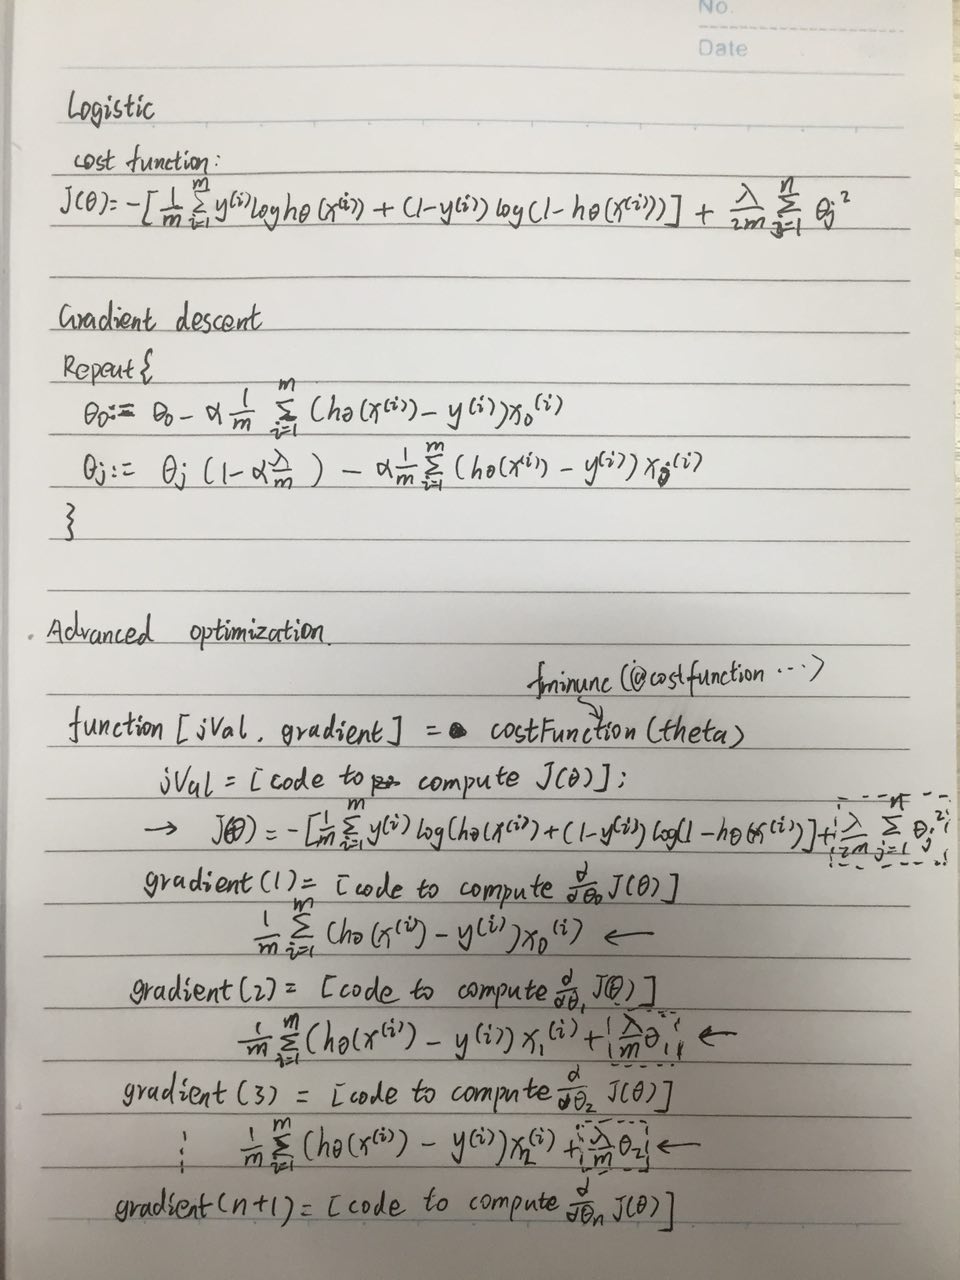 No.
Date
Logistic
cost function:
J(θ)= -[1/m Σ_{i=1}^{m} y^(i) log hθ(x^(i)) + (1-y^(i)) log(1-hθ(x^(i)))] + λ/2m Σ_{j=1}^{n} θj^2
Gradient descent
Repeat{
θ0:= θ0 - α 1/m Σ_{i=1}^{m} (hθ(x^(i)) - y^(i))x0^(i)
θj:= θj (1-α λ/m) - α 1/m Σ_{i=1}^{m} (hθ(x^(i)) - y^(i)) xj^(i)
}
Advanced optimization.
fminunc (@costfunction ...)
function [jVal, gradient] = costFunction(theta)
jVal = [code to compute J(θ)];
→ J(θ) = -[1/m Σ_{i=1}^{m} y^(i) log(hθ(x^(i)) + (1-y^(i)) log(1-hθ(x^(i))] + λ/2m Σ_{j=1}^{n} θj^2
gradient(1)= [code to compute d/dθ0 J(θ)]
1/m Σ_{i=1}^{m} (hθ(x^(i)) - y^(i))x0^(i) ←
gradient(2)= [code to compute d/dθ1 J(θ)]
1/m Σ_{i=1}^{m} (hθ(x^(i)) - y^(i)) x1^(i) + λ/m θ1 ←
gradient(3) = [code to compute d/dθ2 J(θ)]
⋮ 1/m Σ_{i=1}^{m} (hθ(x^(i)) - y^(i))x2^(i) + λ/m θ2 ←
gradient(n+1) = [code to compute d/dθn J(θ)]